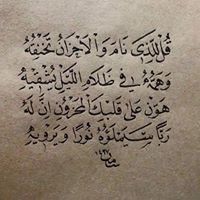 قُل لِلَّذِي نَامَ وَالأَحْزَانُ تَخْنُقُهُ
وَهَمُّهُ فِي ظَلَامِ اللَّيْلِ يُشْقِيهِ
هَوِّنْ عَلَى قَلْبِكَ المَحْزُونِ إِنَّ لَهُ
رَبًّا سَيَمْلَؤُهُ نُورًا وَيَرْوِيهِ